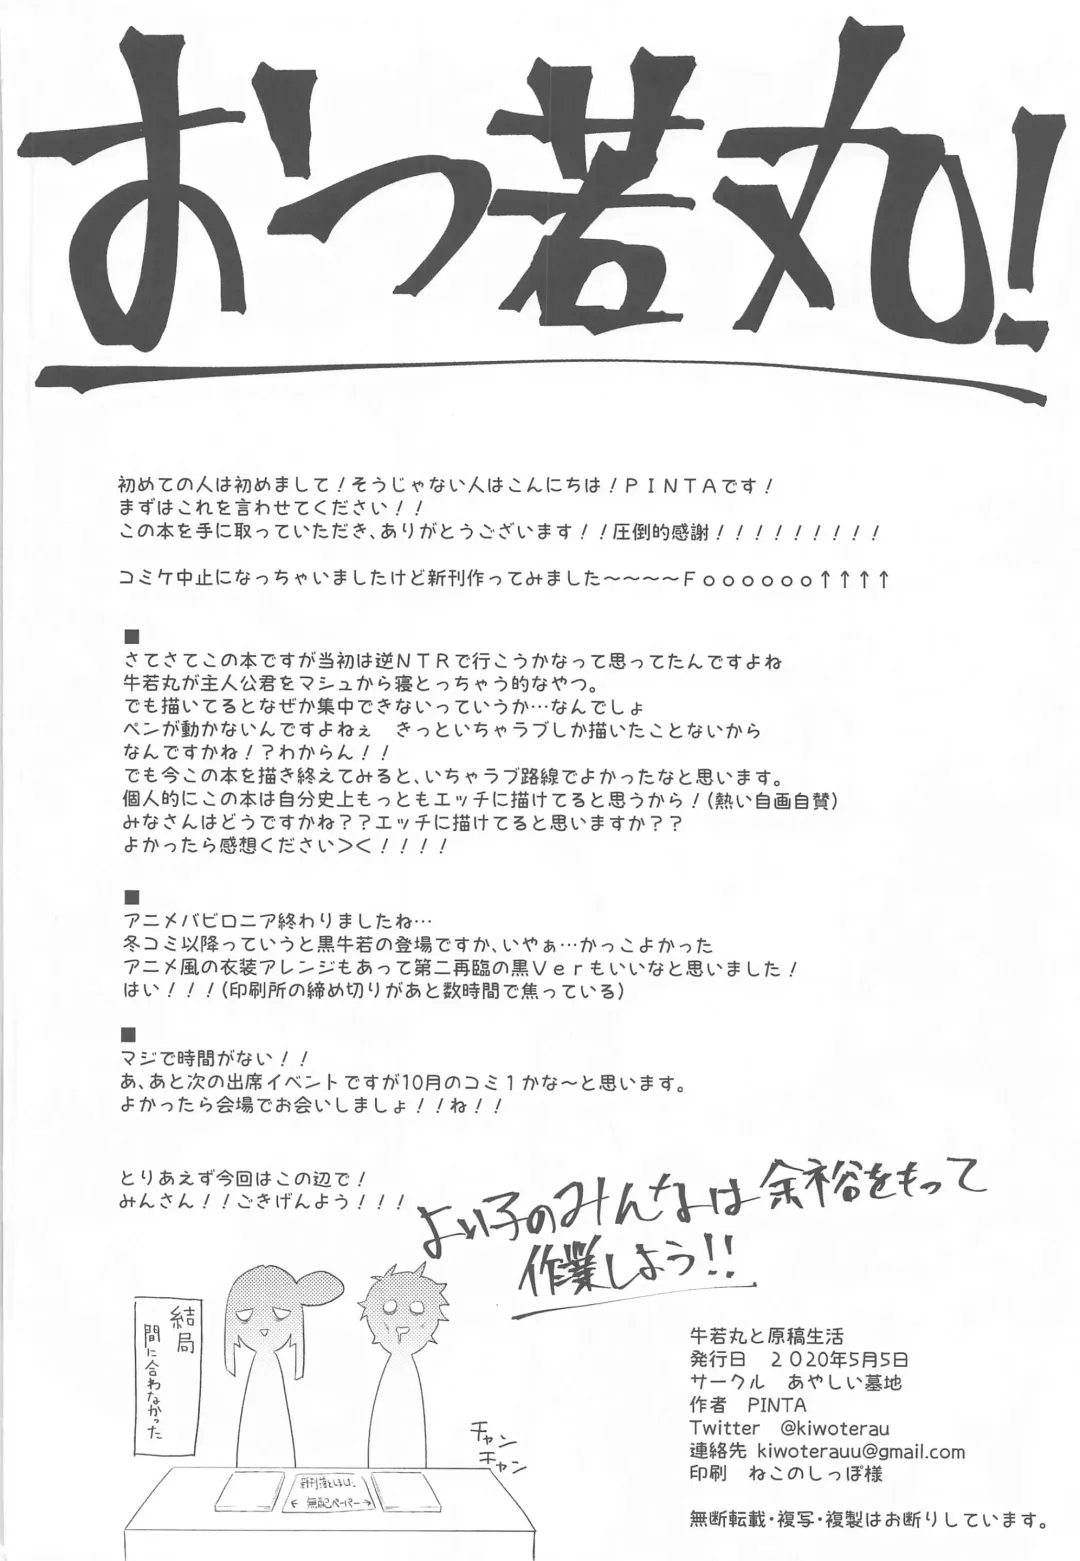 おつ若丸!
初めての人は初めまして!そうじゃない人はこんにちは!PINTAです!
まずはこれを言わせてください!!
この本を手に取っていただき、ありがとうございます!!圧倒的感謝!!!!!!!!!
コミケ中止になっちゃいましたけど新刊作ってみました~~~~Foooooo↑↑↑↑
■
さてさてこの本ですが当初は逆NTRで行こうかなって思ってたんですよね
牛若丸が主人公君をマシュから寝とっちゃう的なやつ。
でも描いてるとなぜか集中できないっていうか…なんでしょ
ペンが動かないんですよねぇ きっといちゃラブしか描いたことないから
なんですかね!?わからん!!
でも今この本を描き終えてみると、いちゃラブ路線でよかったなと思います。
個人的にこの本は自分史上もっともエッチに描けてると思うから!(熱い自画自賛)
みなさんはどうですかね??エッチに描けてると思いますか??
よかったら感想ください><!!!!
■
アニメバビロニア終わりましたね…
冬コミ以降っていうと黒牛若の登場ですか、いやぁ…かっこよかった
アニメ風の衣装アレンジもあって第二再臨の黒Verもいいなと思いました!
はい!!!(印刷所の締め切りがあと数時間で焦っている)
■
マジで時間がない!!
あ、あと次の出席イベントですが10月のコミ1かな~と思います。
よかったら会場でお会いしましょ!!ね!!
とりあえず今回はこの辺で!
みんさん!!ごきげんよう!!!
よい子のみんなは余裕をもって
作業しよう!!
結局
間に合わなかった
チャン
チャン
新刊落としました。
← 無配ペーパー→
牛若丸と原稿生活
発行日 2020年5月5日
サークル あやしい墓地
作者 PINTA
Twitter @kiwoterau
連絡先 kiwoterauu@gmail.com
印刷 ねこのしっぽ様
無断転載・複写・複製はお断りしています。